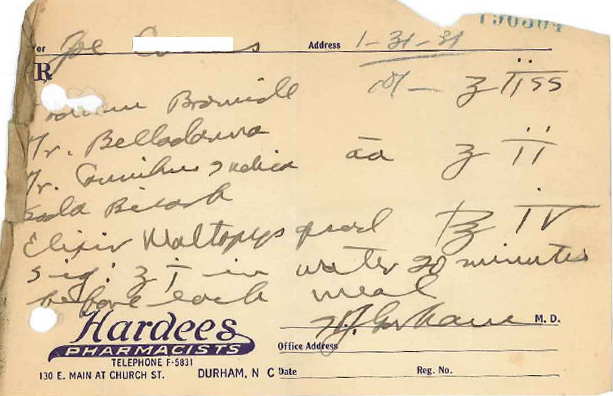 190804
For Joe Address 1-31-31
R
Bromide ʒ iiss
Tr. Belladonna
Tr. Indica āā ʒ ii
Soda Bicarb
Elixir qsad ʒ IV
Sig: ʒ i in water 20 minutes
before each meal
M. D.
Hardees
PHARMACISTS
Office Address
TELEPHONE F-5831
130 E. MAIN AT CHURCH ST. DURHAM, N C Date Reg. No.